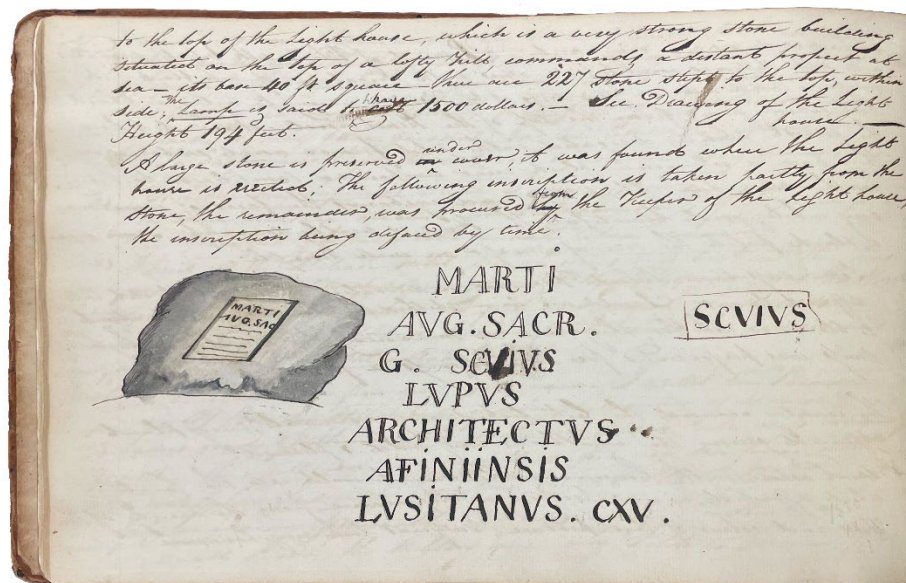 to the top of the Light house, which is a very strong stone building
situated on the top of a lofty hill, commands a distant prospect at
sea – its base 40 ft square – there are 227 stone steps to the top, within
side, the Lamp is said to have cost 1500 dollars. – See Drawing of the Light
Height 194 feet. house. –
A large stone is preserved under cover, it was found where the Light
house is erected, The following inscription is taken partly from the
stone, the remainder was procured from the Keeper of the Light house,
the inscription being defaced by time.
MARTI
AUG. SAC
MARTI
AVG. SACR.
G. SCVIVS
SCVIVS
LVPVS
ARCHITECTVS
AFINIINSIS
LVSITANVS. CXV.